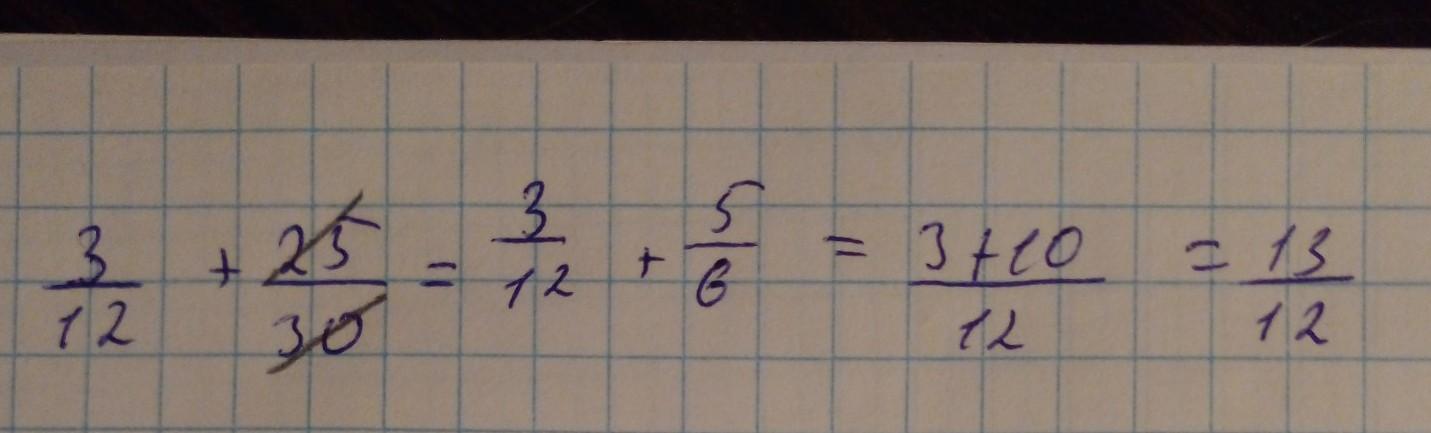 3/12 + 25/30 = 3/12 + 5/6 = 3+10/12 = 13/12